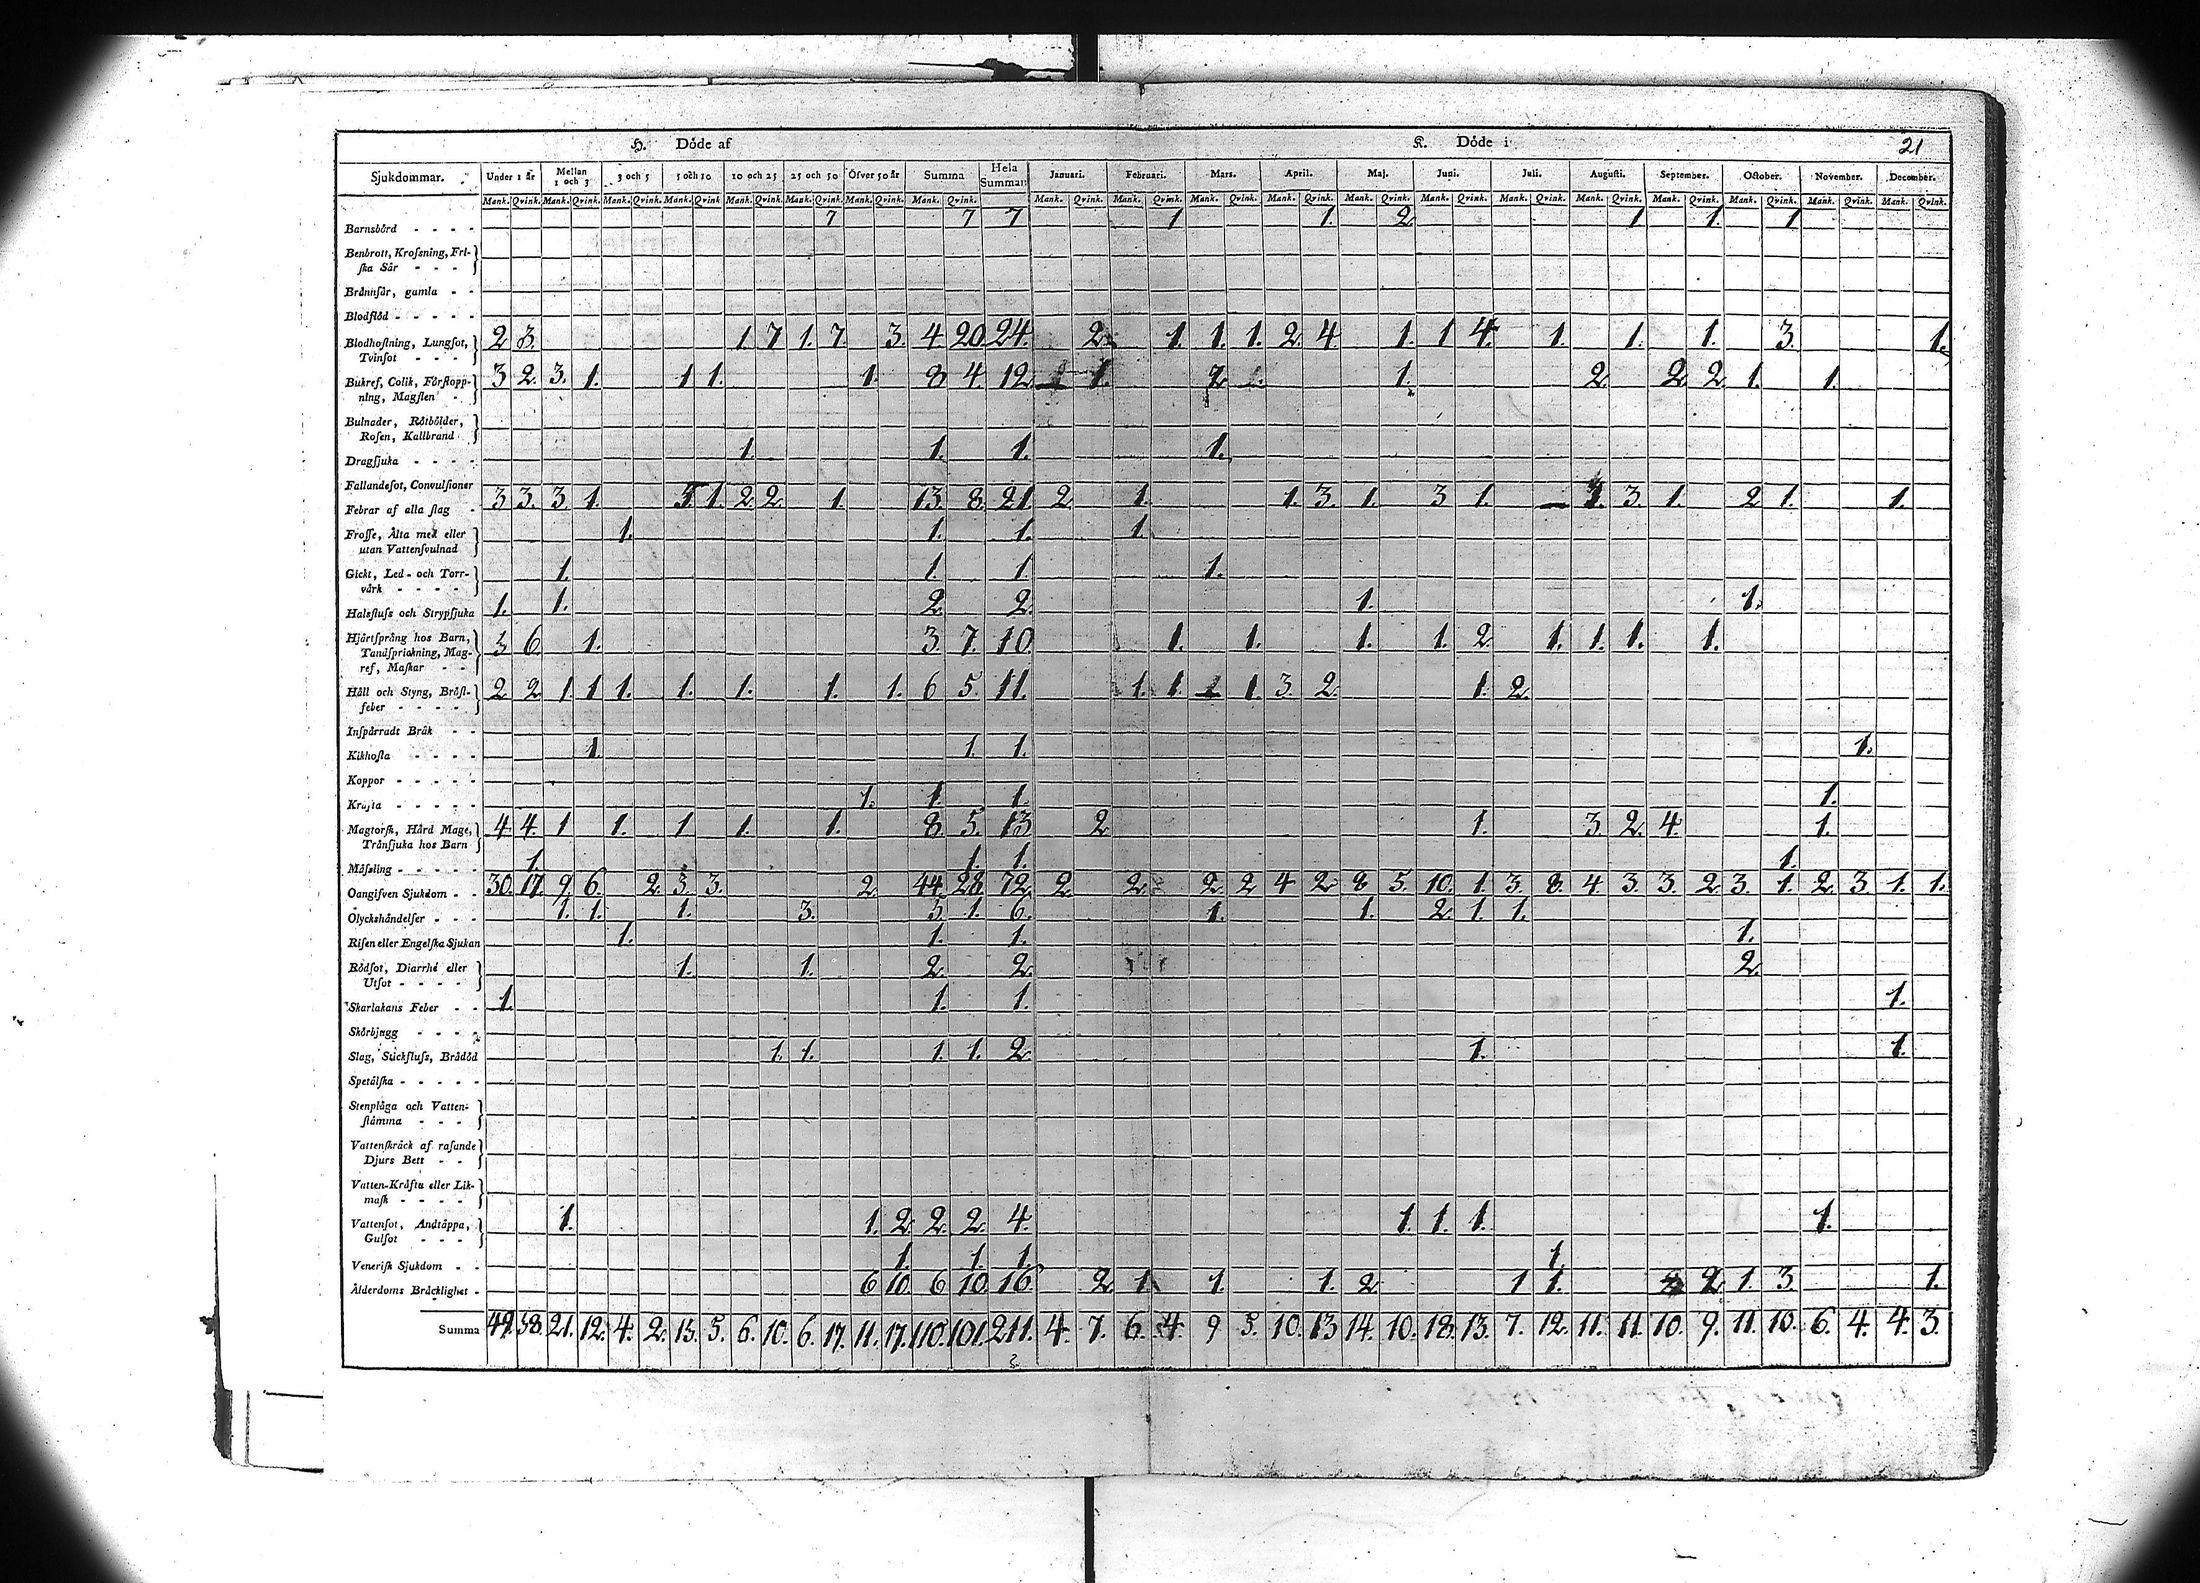 H. Döde af K. Döde i 21
Sjukdommar. Under 1 år Mellan 1 och 3 3 och 5 5 och 10 10 och 25 25 och 50 Öfver 50 år Summa Hela Summan Januari. Februari. Mars. April. Maj. Juni. Juli. Augusti. September. October. November. December.
Mank. Qvink. Mank. Qvink. Mank. Qvink. Mank. Qvink. Mank. Qvink. Mank. Qvink. Mank. Qvink. Mank. Qvink. Mank. Qvink. Mank. Qvink. Mank. Qvink. Mank. Qvink. Mank. Qvink. Mank. Qvink. Mank. Qvink. Mank. Qvink. Mank. Qvink. Mank. Qvink. Mank. Qvink. Mank. Qvink.
Barnsbörd 7 7 7 1 1. 2 1 1. 1
Benbrott, Krossning, Fri-
ska Sår
Brännsår, gamla
Blodflöd
Blodhostning, Lungsot, 2 3. 1. 7 1. 7. 3. 4. 20. 24. 2. 1. 1. 1. 2. 4. 1. 1 4. 1. 1. 1. 3. 1.
Tvinsot
Bukref, Colik, Förstopp- 3 2. 3. 1. 1 1. 1. 8 4 12 1. 1. 2. 2. 2 1. 1.
ning, Magsten
Bulnader, Rötbölder,
Rosen, Kallbrand
Dragsjuka 1. 1. 1. 1.
Fallandesot, Convulsioner
Febrar af alla slag 3 3. 3. 1. 1. 2. 2. 1. 13. 8. 21. 2. 1. 1. 3. 1. 3 1. 3. 1. 2 1. 1.
Frosse, Älta med eller 1. 1. 1. 1.
utan Vattensvulnad
Gickt, Led- och Torr- 1. 1. 1. 1.
värk
Halsfluss och Strypsjuka 1. 1. 2. 2. 1. 1.
Hjärtsprång hos Barn, 3 6. 1. 3. 7. 10. 1. 1. 1. 1. 2. 1. 1. 1. 1.
Tandsprickning, Mag-
ref, Maskar
Håll och Styng, Bröst- 2 2. 1. 1 1. 1. 1. 1. 1. 6 5. 11. 1. 1. 1. 3. 2. 1. 2.
feber
Inspärradt Bråk
Kikhosta 1. 1. 1. 1.
Koppor
Kräfta 1. 1. 1. 1.
Magtorsk, Hård Mage, 4. 4. 1 1. 1 1. 1. 8. 5. 13 2 1. 3. 2. 4. 1.
Tränsjuka hos Barn
Mässling 1. 1. 1. 1.
Oangifven Sjukdom 30. 17. 9. 6. 2. 3. 3. 2. 44. 28. 72. 2. 2. 2. 2 4 2. 8 5. 10. 1. 3. 8. 4. 3. 3. 2. 3. 1. 2. 3. 1. 1.
Olyckshändelser 1. 1. 1. 3. 5. 1. 6. 1. 1. 2. 1. 1.
Risen eller Engelska Sjukan 1. 1. 1. 1.
Rödsot, Diarrhé eller 1. 1. 2. 2. 2.
Utsot
Skarlakans Feber 1. 1. 1. 1.
Skörbjugg
Slag, Stickfluss, Bråddöd 1. 1. 1. 1. 2. 1. 1.
Spetälska
Stenplåga och Vatten-
stämma
Vattenskräck af rasande
Djurs Bett
Vatten-Kräfta eller Lik-
mask
Vattensot, Andtäppa, 1. 1. 2. 2. 2. 4. 1. 1. 1. 1.
Gulsot
Venerisk Sjukdom 1. 1. 1. 1
Ålderdoms Bräcklighet 6 10. 6 10. 16. 2. 1. 1. 1. 2. 1 1. 2 1. 3. 1.
Summa 49. 38. 21. 12. 4. 2. 13. 5. 6. 10. 6. 17. 11. 17. 110. 101. 211. 4. 7. 6. 4. 9 5. 10. 13 14. 10. 18. 13. 7. 12. 11. 11. 10. 9. 11. 10. 6. 4. 4. 3.